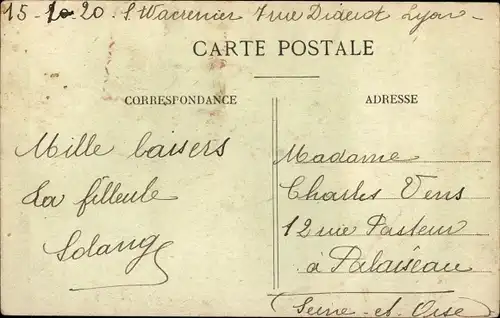 15-10-20 S Wacrenier 7 rue Diderot Lyon
CARTE POSTALE
CORRESPONDANCE
ADRESSE
Mille baisers
La filleule
Solange
Madame
Charles Vens
12 rue Pasteur
a Palaiseau
(Seine-et-Oise)